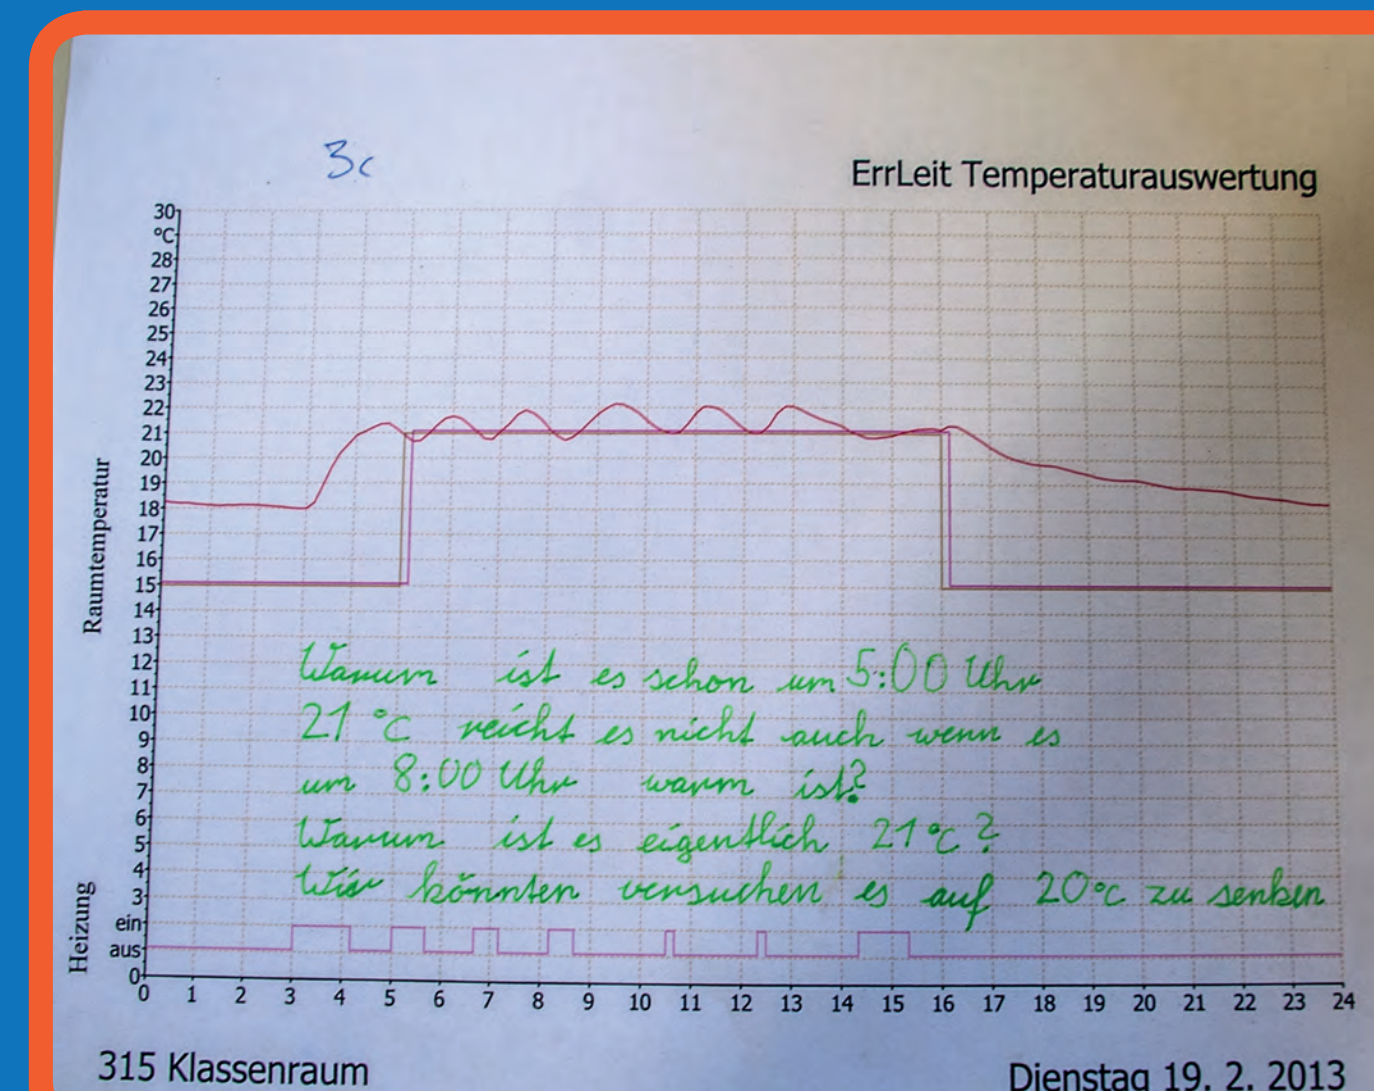 3c
ErrLeit Temperaturauswertung
30
°C
28
27
26
25
24
23
22
21
20
19
18
17
16
15
14
13
12
11
10
9
8
7
6
5
4
3
ein
aus
0
Raumtemperatur
Heizung
Warum ist es schon um 5:00 Uhr
21 °C reicht es nicht auch wenn es
um 8:00 Uhr warm ist?
Warum ist es eigentlich 21°C?
Wir könnten versuchen es auf 20°C zu senken
0 1 2 3 4 5 6 7 8 9 10 11 12 13 14 15 16 17 18 19 20 21 22 23 24
315 Klassenraum
Dienstag 19. 2. 2013